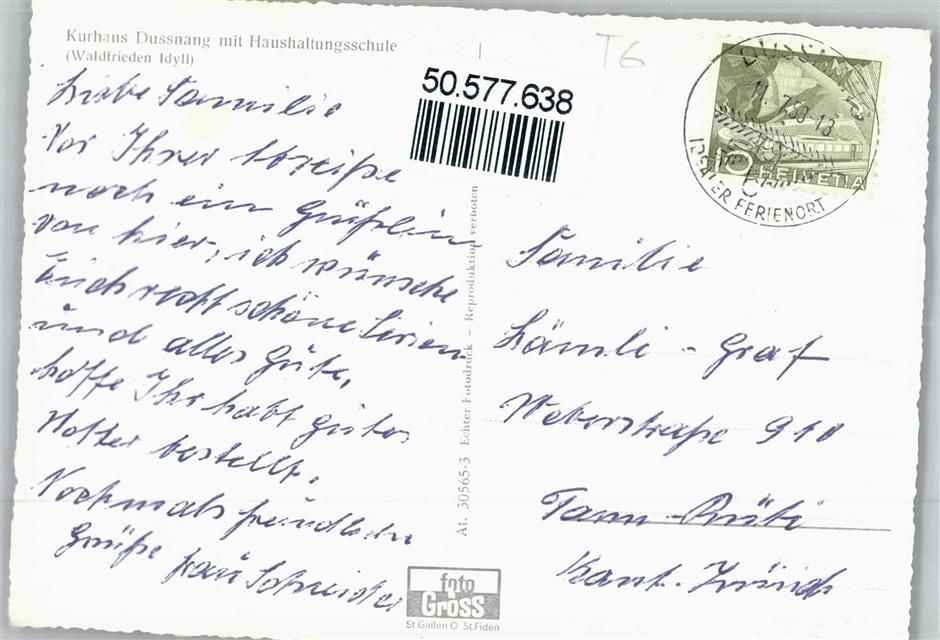 Kurhaus Dussnang mit Haushaltungsschule
(Waldfrieden Idyll)
Liebe Familie
Vor Ihrer Abreiße
noch ein Grüßlein
von hier, ich wünsche
Euch recht schöne Ferien
und alles Güte,
hoffe Ihr habt gutes
Wetter bestellt.
Nochmals freundliche
Grüße frau Schneider
50.577.638
T6
DUSSNANG
11. 7.58-18
IDEALER FERIENORT
10 HELVETIA
At. 30565-3 Echter Fotodruck – Reproduktion verboten
Familie
Lämli - Graf
Weberstraße 910
Tann-Rüti
Kant. Zürich
foto
Gross
St.Gallen O St.Fiden